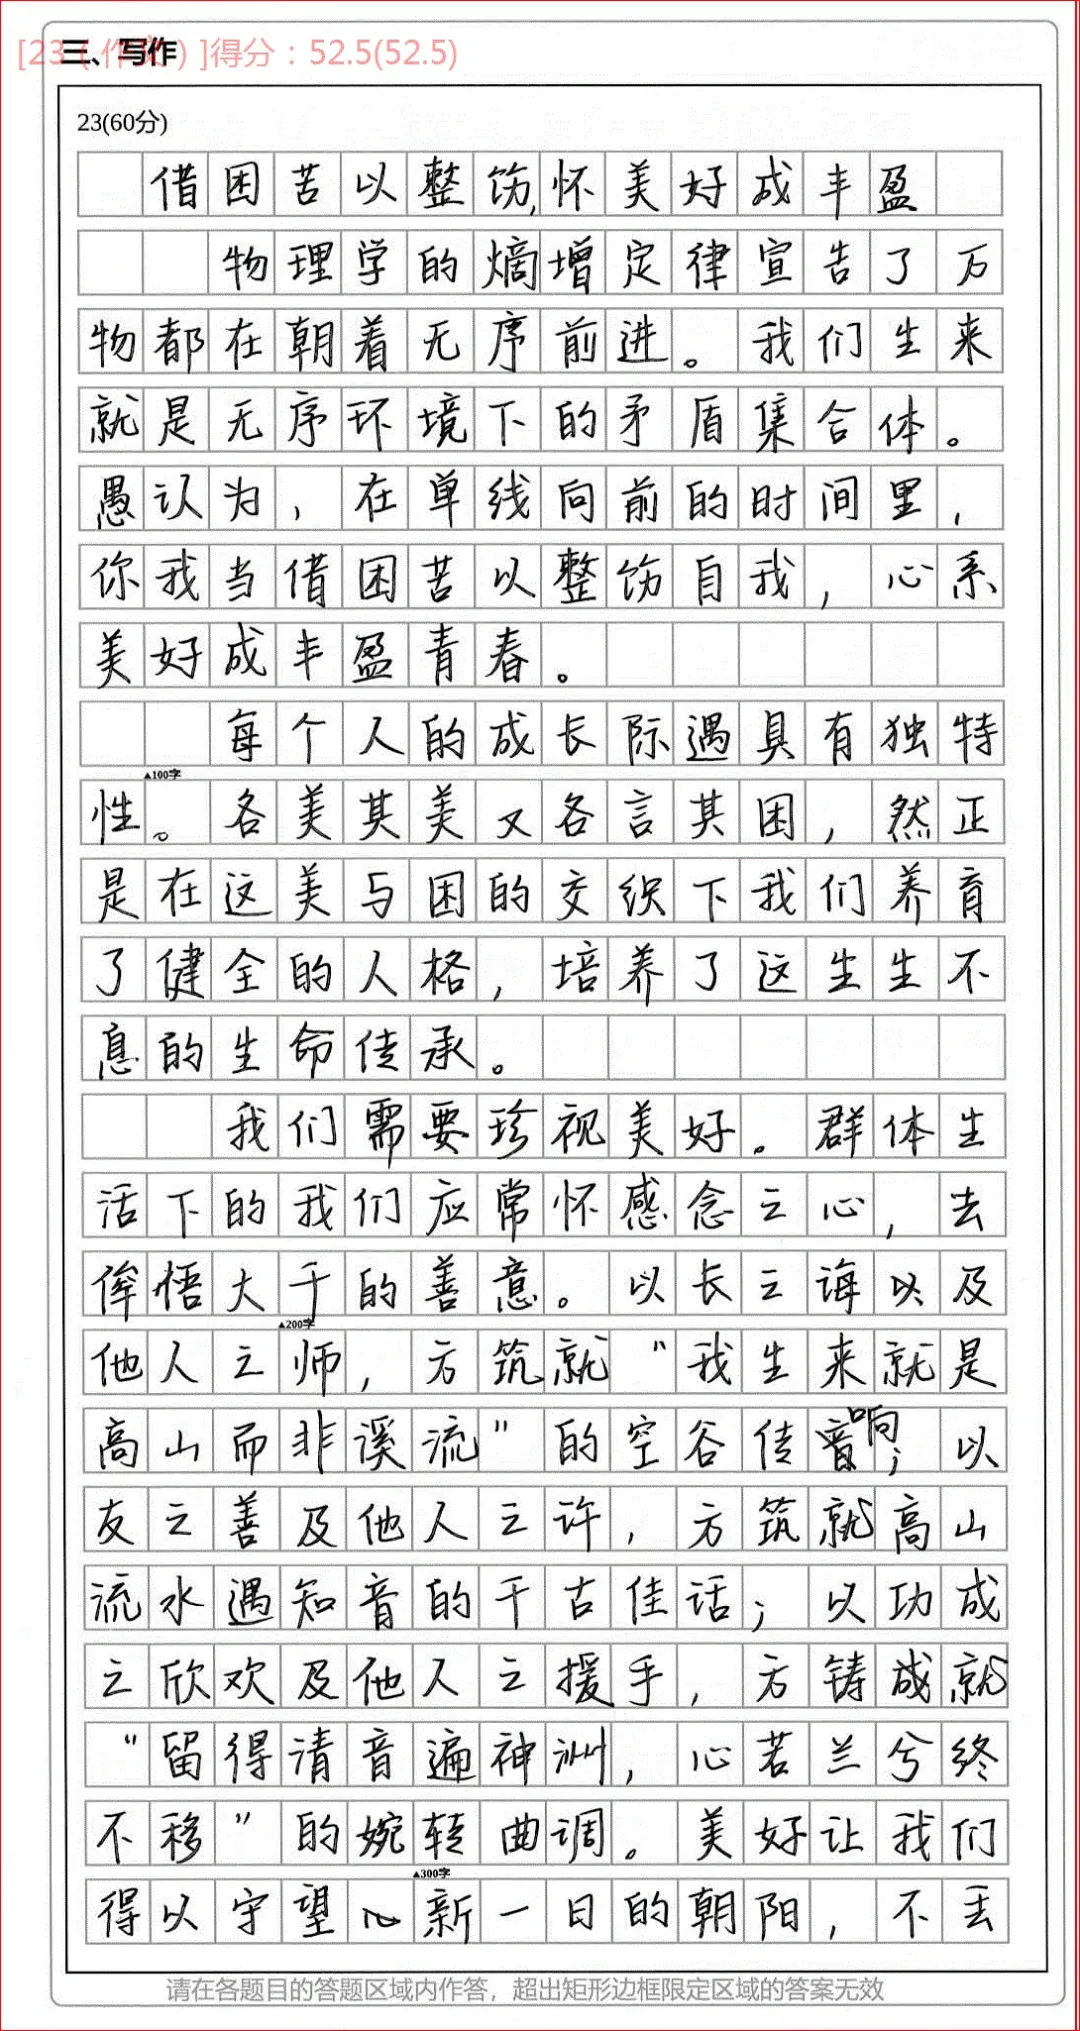 [23（作文）]得分：52.5(52.5)
三、写作
23(60分)
借困苦以整饬,怀美好成丰盈
物理学的熵增定律宣告了万
物都在朝着无序前进。我们生来
就是无序环境下的矛盾集合体。
愚认为，在单线向前的时间里，
你我当借困苦以整饬自我，心系
美好成丰盈青春。
每个人的成长际遇具有独特
▲100字
性。各美其美又各言其困，然正
是在这美与困的交织下我们养育
了健全的人格，培养了这生生不
息的生命传承。
我们需要珍视美好。群体生
活下的我们应常怀感念之心，去
体悟大千的善意。以长之诲以及
▲200字
他人之师，方筑就“我生来就是
高山而非溪流”的空谷传响；以
友之善及他人之许，方筑就高山
流水遇知音的千古佳话；以功成
之欣欢及他人之援手，方铸成就
“留得清音遍神洲，心若兰兮终
不移”的婉转曲调。美好让我们
▲300字
得以守望新一日的朝阳，不丢
请在各题目的答题区域内作答，超出矩形边框限定区域的答案无效